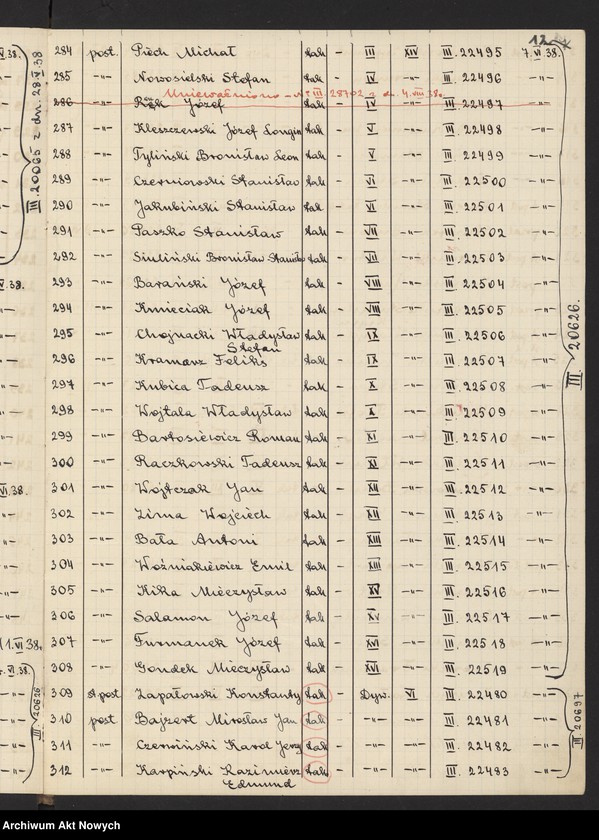 12
284 post. Piech Michał tak - III XIV III. 22495 7.VI.38.
285 -"- Nowosielski Stefan tak - IV -"- III. 22496 -"-
Unieważniono - Nr III. 28702 z dn. 4.VIII 38.
286 -"- Józef tak - IV -"- III. 22497 -"-
287 -"- Kleszczewski Józef Longin tak - V -"- III. 22498 -"-
288 -"- Tyliński Bronisław Leon tak - V -"- III. 22499 -"-
289 -"- Czerniowski Stanisław tak - VI -"- III. 22500 -"-
290 -"- Jakubiński Stanisław tak - VI -"- III. 22501 -"-
291 -"- Paszko Stanisław tak - VII -"- III. 22502 -"-
292 -"- Siuliński Bronisław Stanisław tak - VII -"- III. 22503 -"-
293 -"- Barański Józef tak - VIII -"- III. 22504 -"-
294 -"- Kmieciak Józef tak - VIII -"- III. 22505 -"-
295 -"- Chojnacki Władysław Stefan tak - IX -"- III. 22506 -"-
296 -"- Kramarz Feliks tak - IX -"- III. 22507 -"-
297 -"- Kubica Tadeusz tak - X -"- III. 22508 -"-
298 -"- Wojtala Władysław tak - X -"- III. 22509 -"-
299 -"- Bartosiewicz Roman tak - XI -"- III. 22510 -"-
300 -"- Raczkowski Tadeusz tak - XI -"- III. 22511 -"-
301 -"- Wojtczak Jan tak - XII -"- III. 22512 -"-
302 -"- Zima Wojciech tak - XII -"- III. 22513 -"-
303 -"- Bała Antoni tak - XIII -"- III. 22514 -"-
304 -"- Woźniakiewicz Emil tak - XIII -"- III. 22515 -"-
305 -"- Kika Mieczysław tak - XV -"- III. 22516 -"-
306 -"- Salamon Józef tak - XV -"- III. 22517 -"-
307 -"- Furmanek Józef tak - XVI -"- III. 22518 -"-
308 -"- Gondek Mieczysław tak - XVI -"- III. 22519 -"-
309 st.post. Zapałowski Konstanty tak - Dyw. VI III. 22480 -"-
310 post Bajzert Mirosław Jan tak - -"- -"- III. 22481 -"-
311 -"- Czerwiński Karol Jerzy tak - -"- -"- III. 22482 -"-
312 -"- Karpiński Kazimierz Edmund tak - -"- -"- III. 22483 -"-
III. 20065 z dn. 28.V.38
III. 20626
III. 20626.
III. 20697
Archiwum Akt Nowych